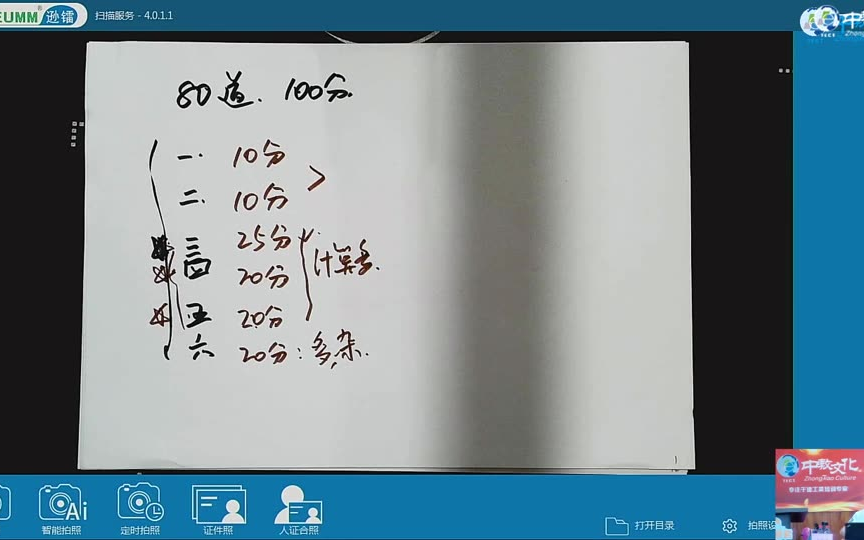 EUMM® 逊镭 扫描服务 - 4.0.1.1
80道. 100分.
一. 10分
二. 10分
三 25分
四 20分
计算多.
五 20分
六 20分: 多,杂.
中教文化
Zhongjiao Culture
智能拍照
定时拍照
证件照
人证合照
打开目录